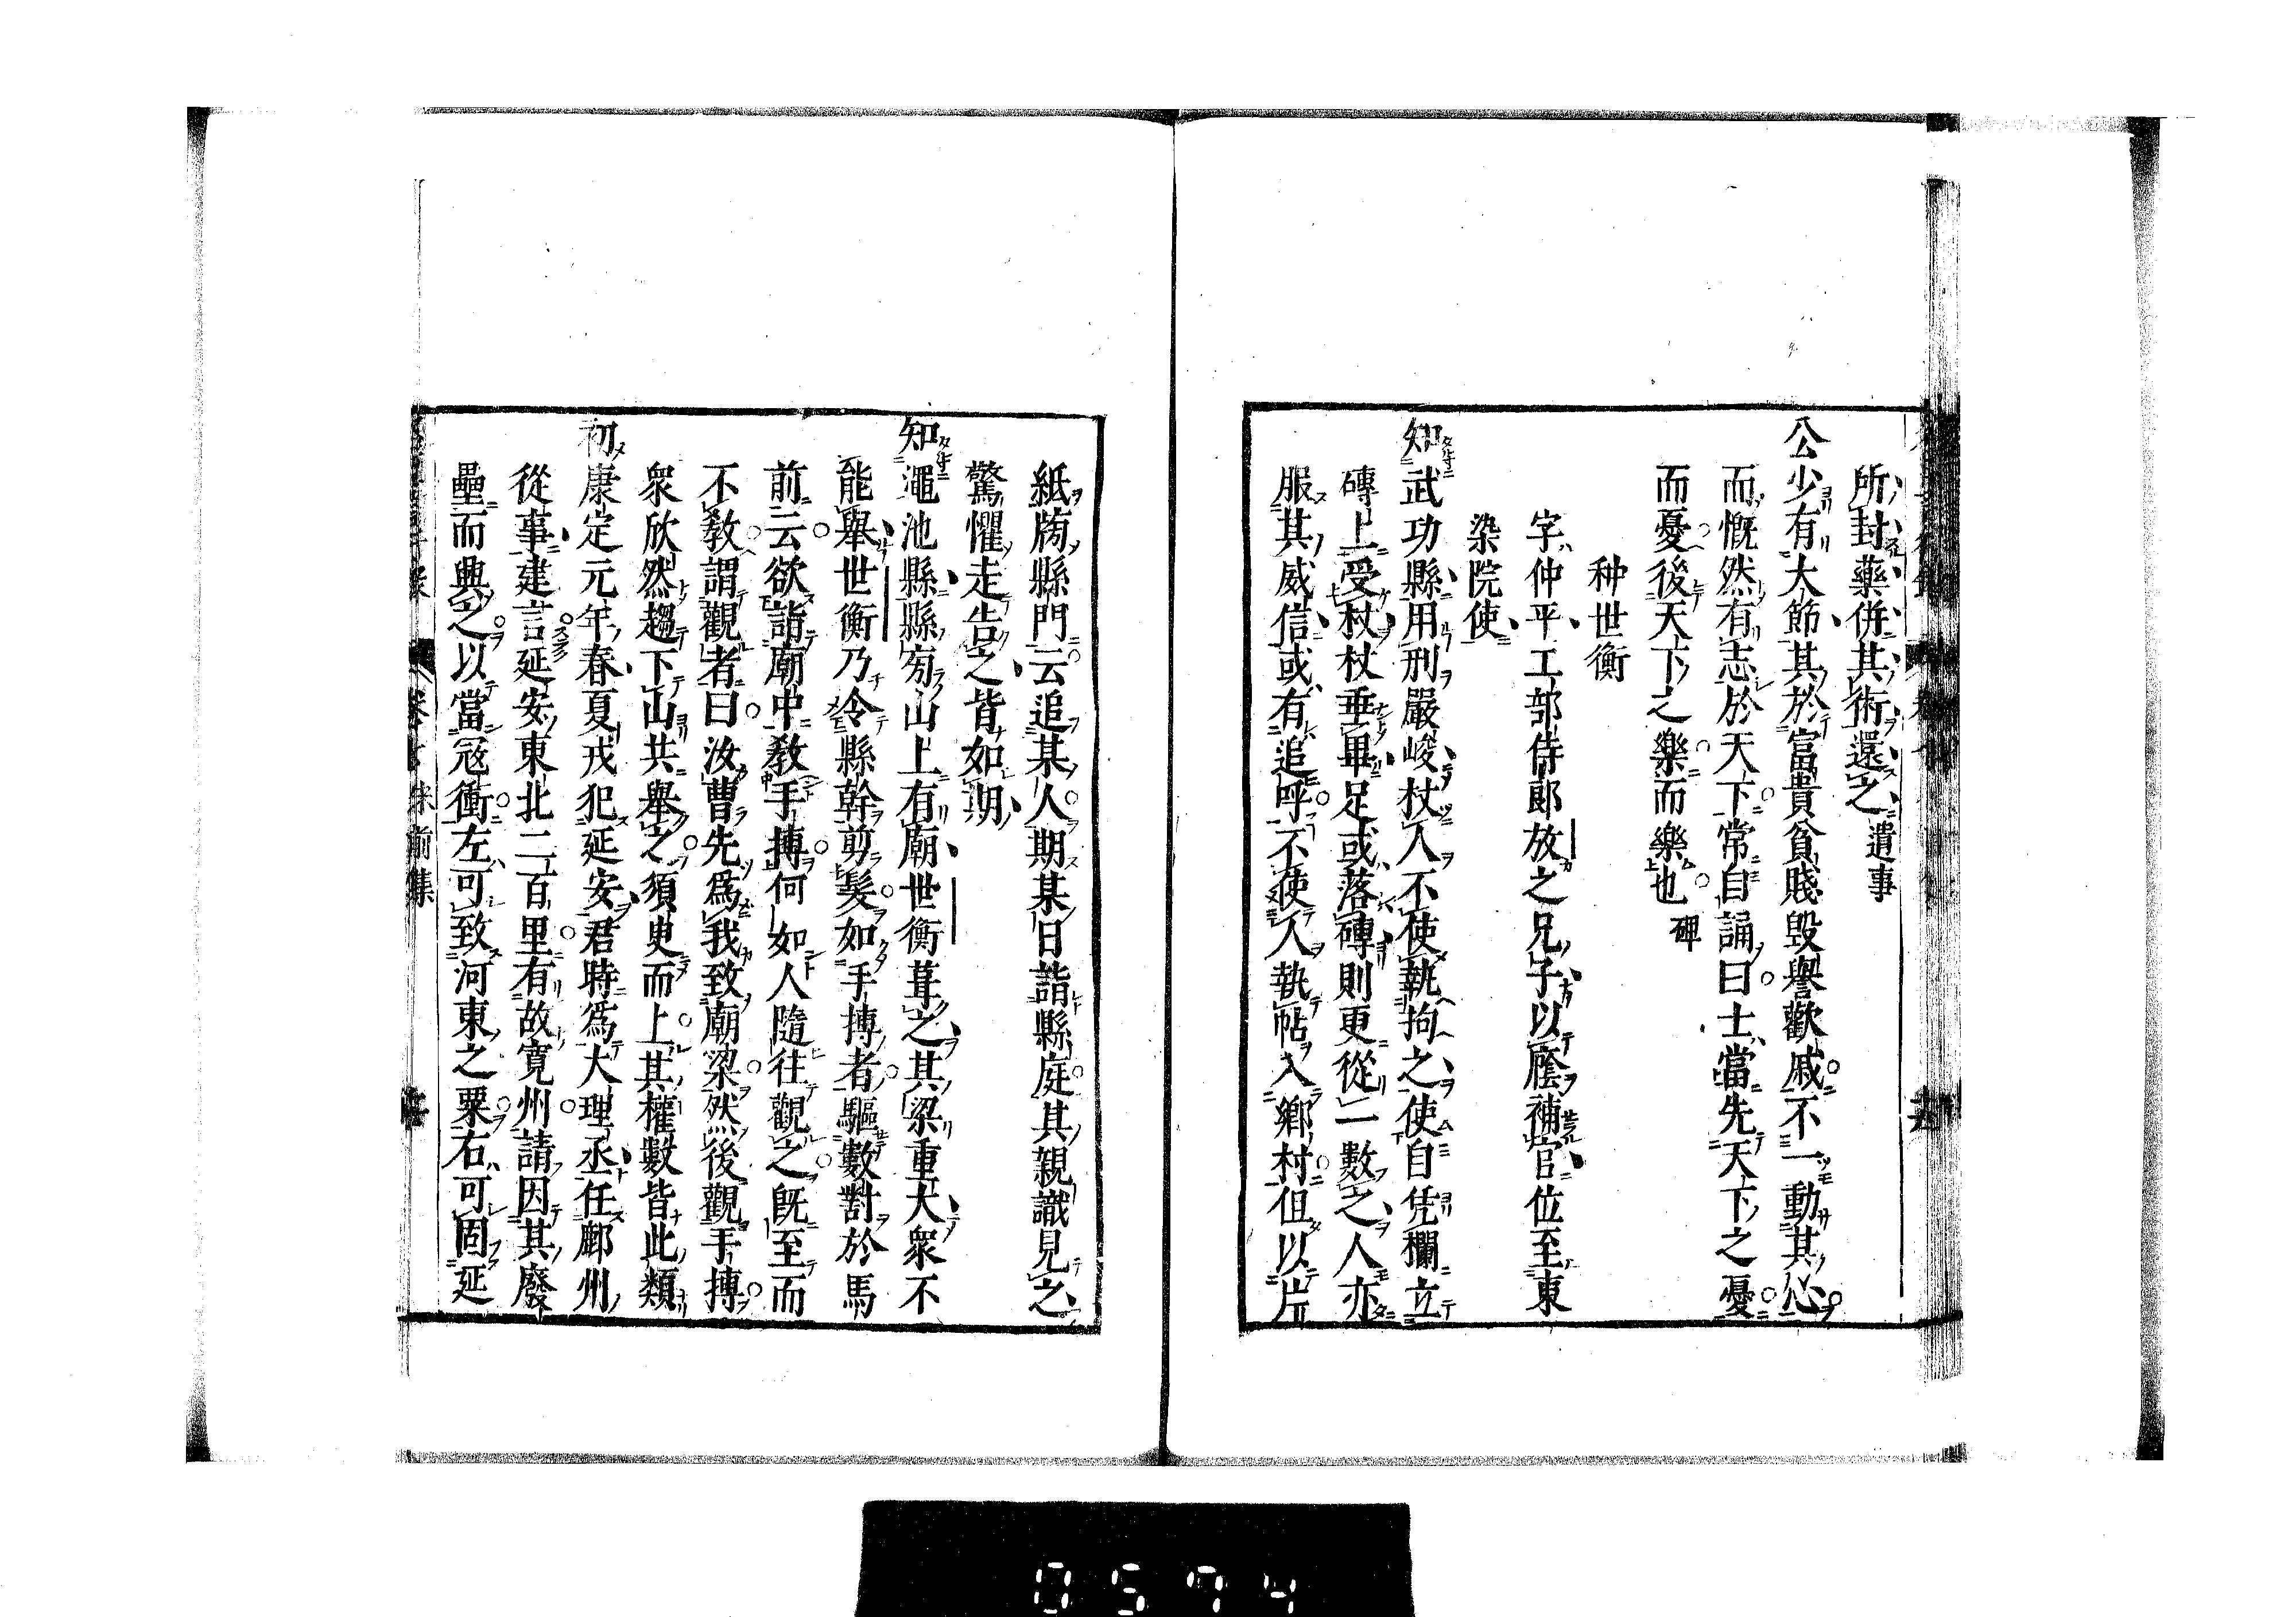 所封藥併其術還之遺事
公少有大節其於富貴貧賤毀譽歡戚不一動其心
而慨然有志於天下常自誦曰士當先天下之憂
而憂後天下之樂而樂也碑
种世衡
字仲平工部侍郎放之兄子以廕補官位至東
染院使
知武功縣用刑嚴峻杖人不使執拘之使自凭欄立
磚上受杖杖垂畢足或落磚則更從一數之人亦
服其威信或有追呼不使人執帖入鄉村但以片
紙牓縣門云追某人期某日詣縣庭其親識見之
驚懼走告之皆如期
知澠池縣縣旁山上有廟世衡葺之其梁重大衆不
能舉世衡乃令縣幹剪髮如手搏者驅數對於馬
前云欲詣廟中教手搏何如人隨往觀之既至而
不教謂觀者曰汝曹先爲我致廟梁然後觀手搏
衆欣然趨下山共舉之須臾而上其權數皆此類
初康定元年春夏戎犯延安君時爲大理丞任鄜州
從事建言延安東北二百里有故寬州請因其廢
壘而興之以當冦衝左可致河東之粟右可固延
0574